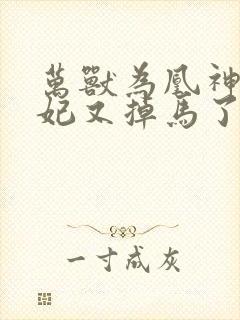 萬獸為凰神
妃又掉馬了
一寸成灰